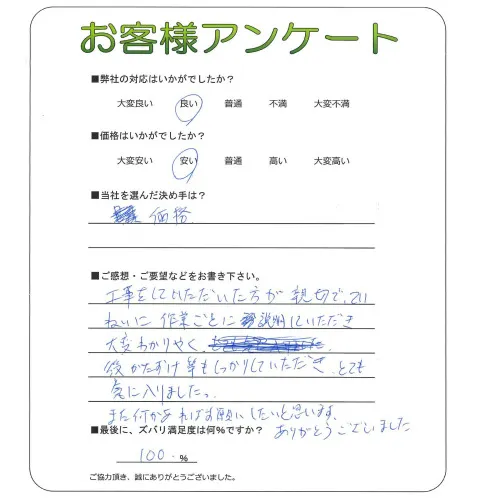 お客様アンケート
■弊社の対応はいかがでしたか?
大変良い 良い 普通 不満 大変不満
■価格はいかがでしたか?
大変安い 安い 普通 高い 大変高い
■当社を選んだ決め手は?
価格
■ご感想・ご要望などをお書き下さい。
工事をしていただいた方が親切で、てい
ねいに作業ごとに説明していただき
大変わかりやく、
後かたずけ等もしっかりしていただき、とても
気に入りましたっ
また何かあればお願いしたいと思います。
ありがとうございました
■最後に、ズバリ満足度は何%ですか?
100 %
ご協力頂き、誠にありがとうございました。